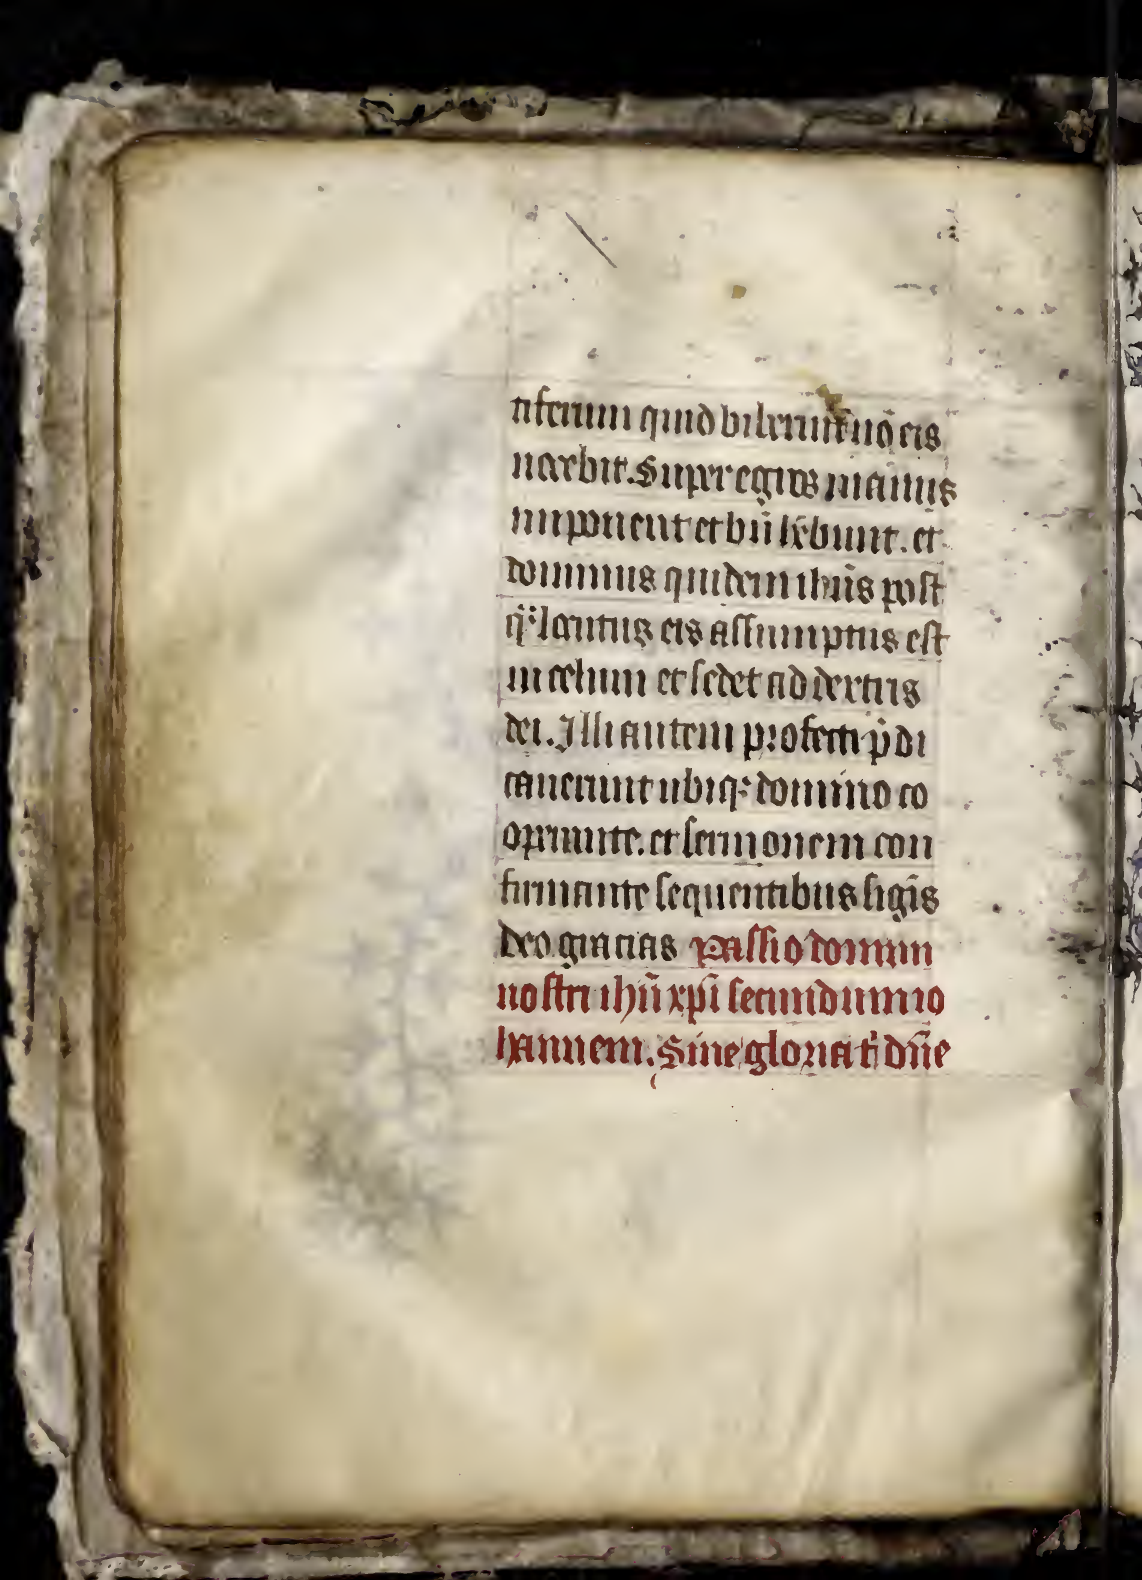 tiferum quid biberint nō eis
nocebit. Super egros manus
imponent et bn̄ hēbunt. et
dominus quidem ihūs post
qͣ locutus eis assumptus est
in celum et sedet ad dextris
dei. Illi autem profecti p̄di
cauerunt ubiqꝫ domino co
operante. et sermonem con
firmante sequentibus sigīs
deo gracias Passio domini
nostri ihū xp̄i secundum io
hannem. Sine gloria ti dn̄e